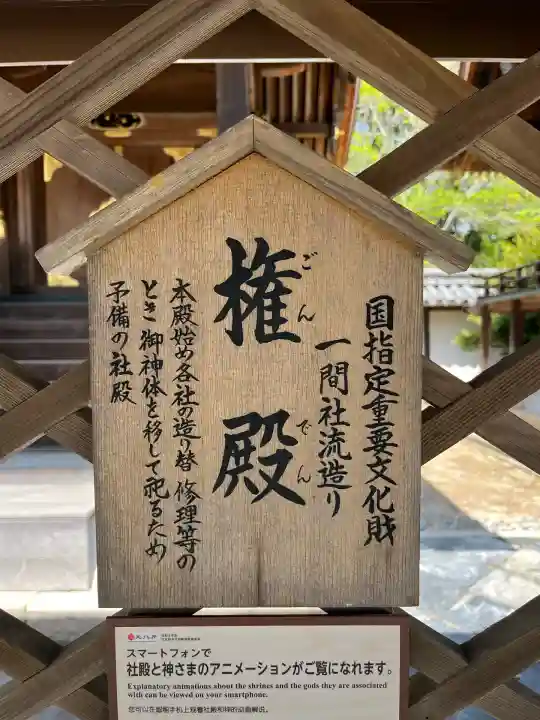 国指定重要文化財
一間社流造り
権殿
ごんでん
本殿始め各社の造り替修理等の
とき御神体を移して祀るため
予備の社殿
スマートフォンで
社殿と神さまのアニメーションがご覧になれます。
Explanatory animations about the shrines and the gods they are associated
with can be viewed on your smartphone.